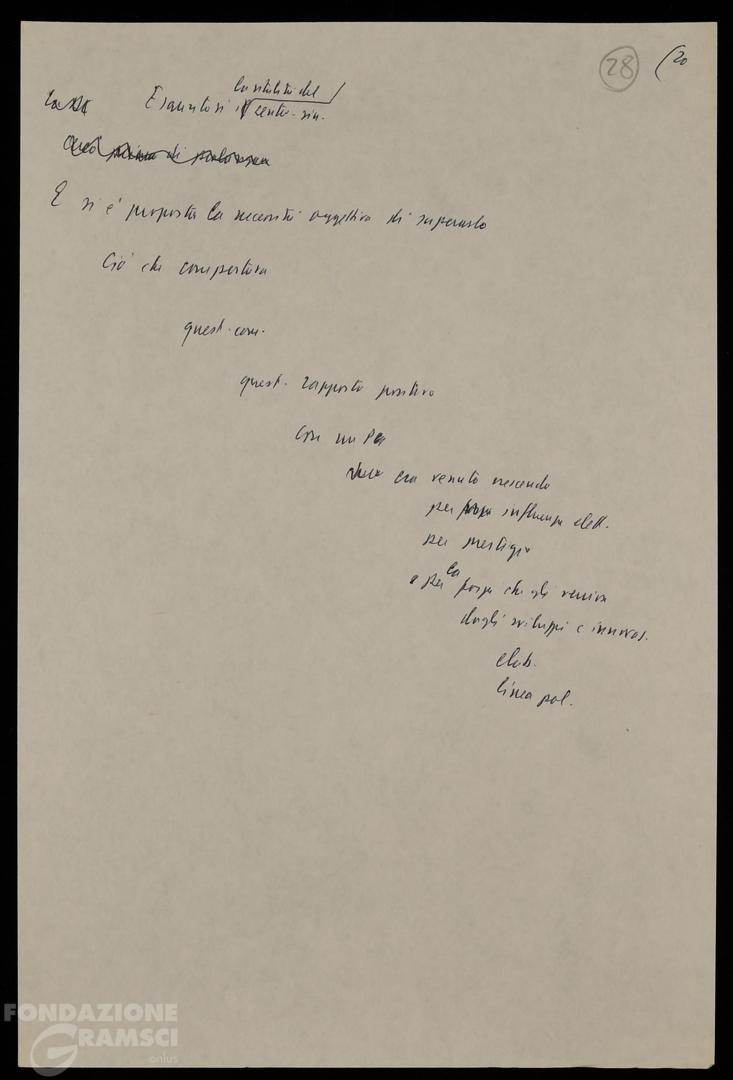 28 (20
la vitalità del
Esauritosi il centro-sin.
E si è proposta la necessità oggettiva di superarlo
Ciò che comportava
quest. com.
quest. rapporto positivo
con un PCI
era venuto crescendo
per influenza elett.
per prestigio
e per la forza che gli veniva
dagli sviluppi e innovaz.
elab.
linea pol.
FONDAZIONE
GRAMSCI
onlus